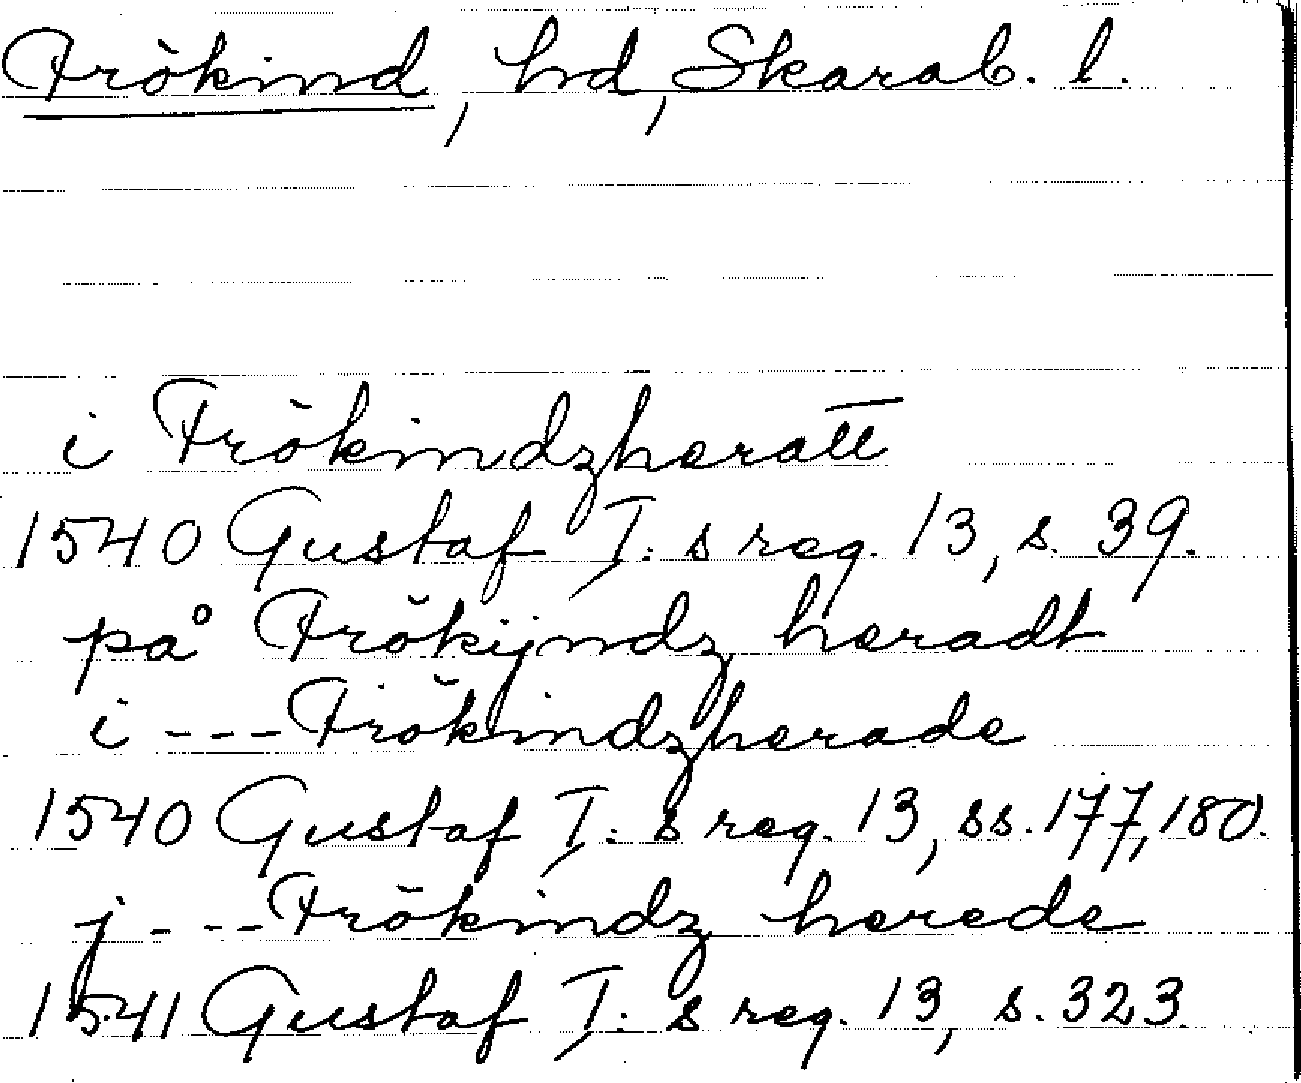 Frökind, hd, Skarab. l.
i Frökindzheratt
1540 Gustaf I:s reg. 13, s. 39.
på Frökijndz heradt
i --- Frökindzherade
1540 Gustaf I:s reg. 13, ss. 177, 180.
j --- Frökindz herede
1541 Gustaf I:s reg. 13, s. 323.